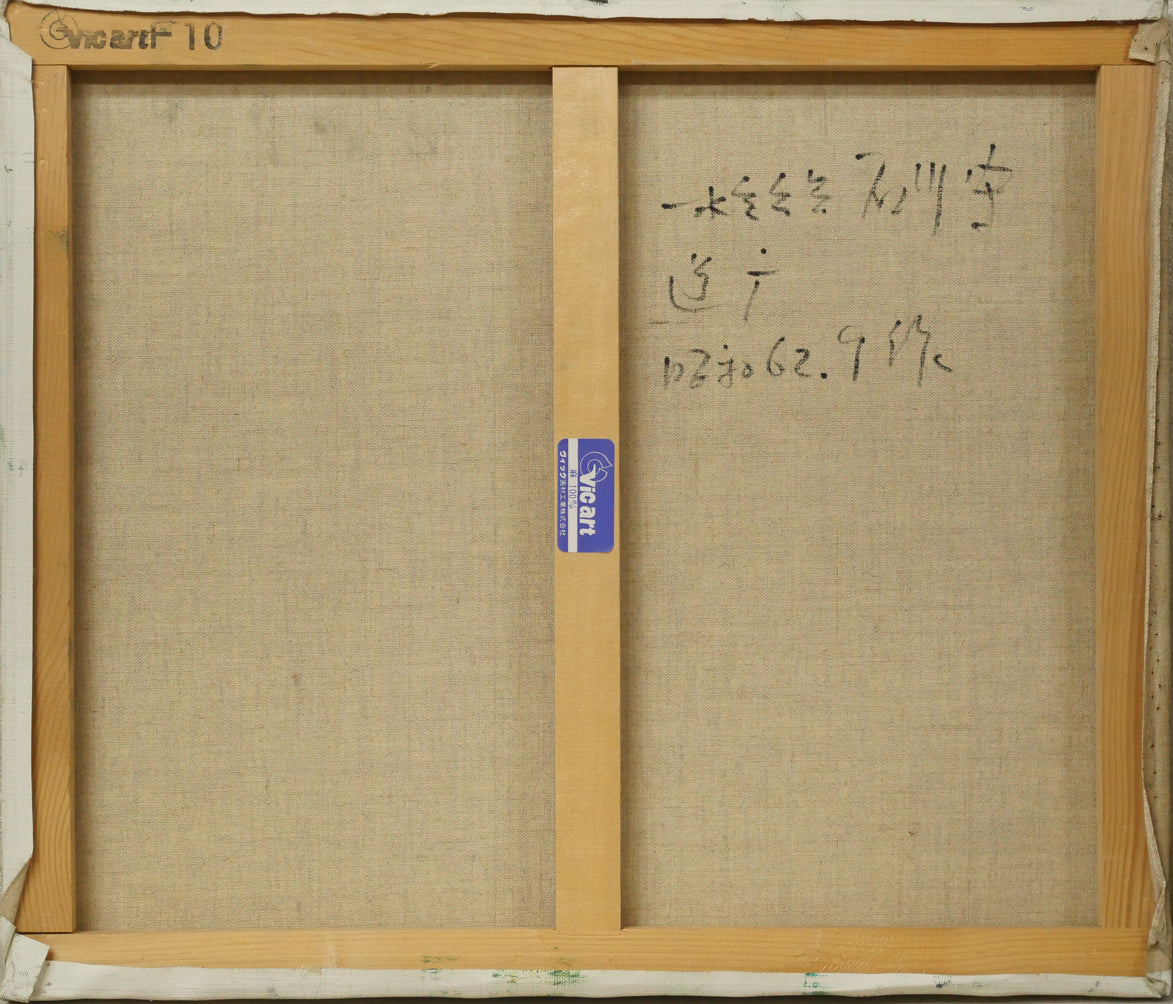 Vicart F 10
一水会 石川守
昭和62.9作
Vicart
麻100%
株式会社